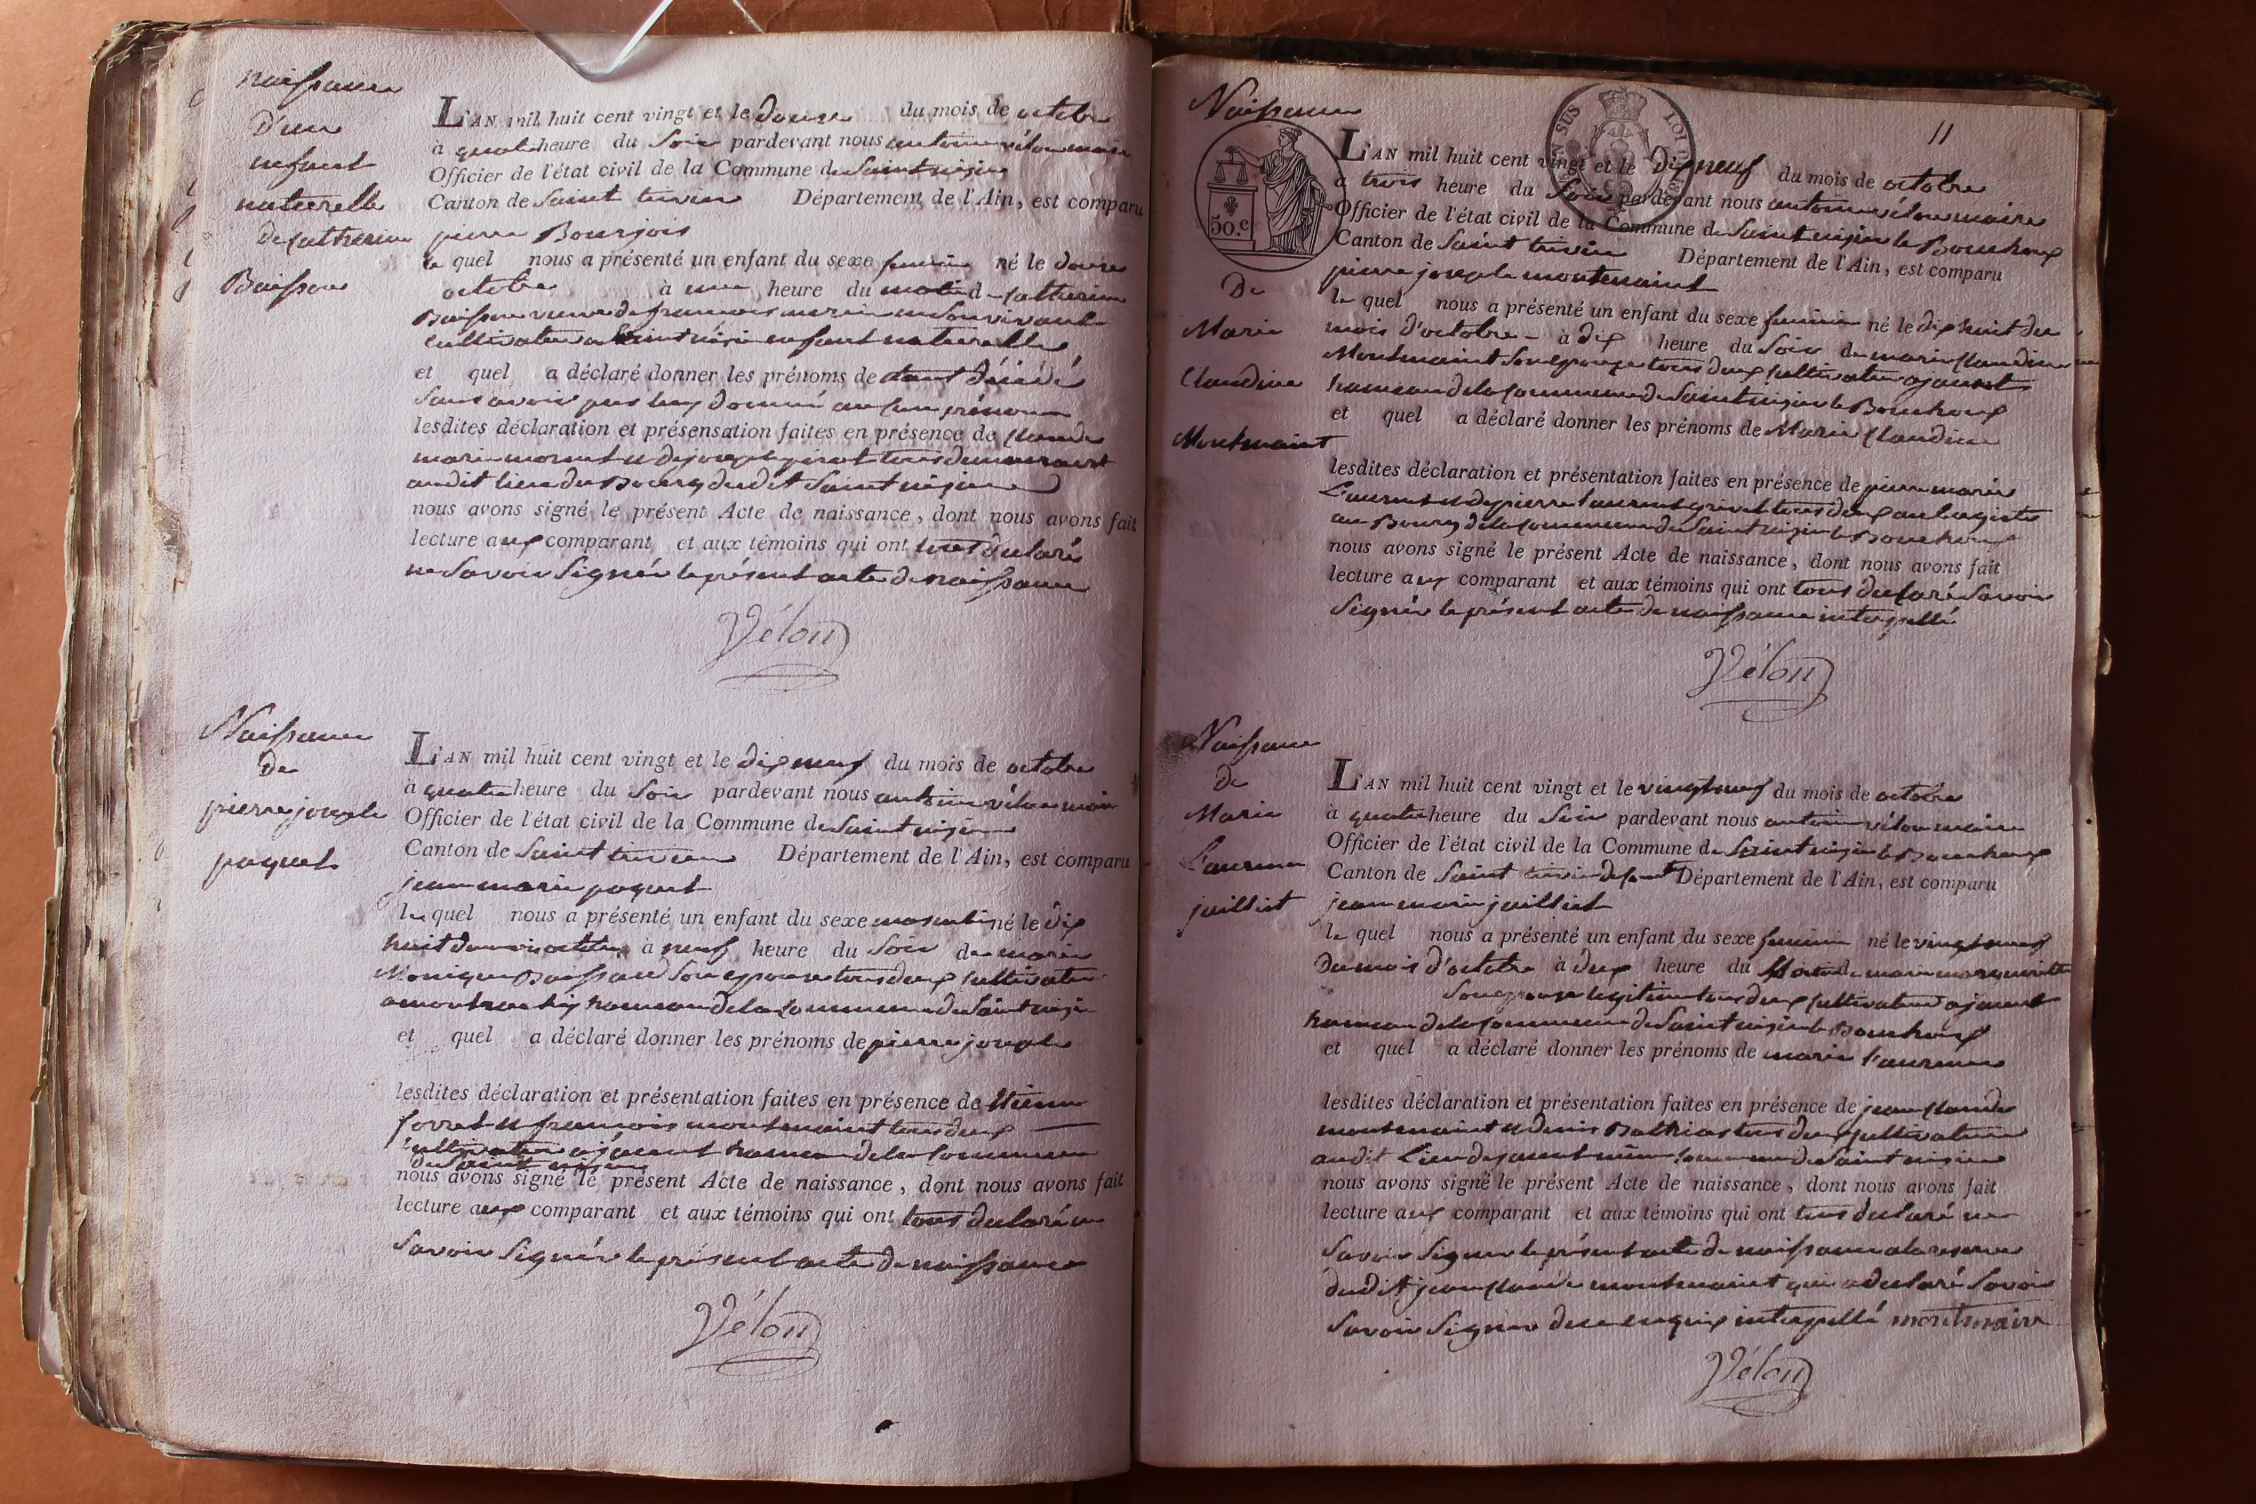 naissance
d'un
enfant
naturelle
de catherine
Buisson
L'AN mil huit cent vingt et le douze du mois de octobre
à quatre heure du Soir pardevant nous antoine vélon maire
Officier de l'état civil de la Commune de Saint nizier
Canton de Saint trivier Département de l'Ain, est comparu
pierre Bourjois
le quel nous a présenté un enfant du sexe feminin né le douze
octobre à une heure du matin de catherine
veuve de francois
cultivateur a Saint nizier enfant naturelle
et quel a déclaré donner les prénoms de étant décédé
Sans avoir pas luy donné aucun prénom
lesdites déclaration et présensation faites en présence de claude
marie mornet et de joseph tous demeurant
audit lieu du Bourg dudit Saint nizier
nous avons signé le présent Acte de naissance, dont nous avons fait
lecture aux comparant et aux témoins qui ont tous déclaré
ne Savoir Signér le présent acte de naissance
Vélon
Naissance
de
pierre joseph
paquet
L'AN mil huit cent vingt et le dix neuf du mois de octobre
à quatre heure du Soir pardevant nous antoine vélon maire
Officier de l'état civil de la Commune de Saint nizier
Canton de Saint trivier Département de l'Ain, est comparu
jean marie paquet
le quel nous a présenté un enfant du sexe masculin né le dix
huit du mois octobre à neuf heure du Soir de marie
Monique Son epouse tous deux cultivateur
hameau de la commune de Saint nizier
et quel a déclaré donner les prénoms de pierre joseph
lesdites déclaration et présentation faites en présence de Etienne
forret et francois montmaint tous deux
cultivateur a jamet hameau de la commune
de Saint nizier
nous avons signé le présent Acte de naissance, dont nous avons fait
lecture aux comparant et aux témoins qui ont tous declaré ne
Savoir Signér le présent acte de naissance
Vélon
11
Naissance
50.c
De
Marie
Claudine
Montmaint
L'AN mil huit cent vingt et le dix neuf du mois de octobre
à trois heure du Soir pardevant nous antoine vélon maire
Officier de l'état civil de la Commune de Saint nizier le Bouchoux
Canton de Saint trivier Département de l'Ain, est comparu
pierre joseph montmaint
le quel nous a présenté un enfant du sexe feminin né le dix huit du
mois d'octobre à dix heure du Soir de marie claudine
Montmaint Son epouse tous deux cultivateur a jamet
hameau de la commune de Saint nizier le Bouchoux
et quel a déclaré donner les prénoms de Marie Claudine
lesdites déclaration et présentation faites en présence de pierre marie
Laurent et de pierre laurent tous deux
au Bourg de la commune de Saint nizier le Bouchoux
nous avons signé le présent Acte de naissance, dont nous avons fait
lecture aux comparant et aux témoins qui ont tous déclaré Savoir
Signér le présent acte de naissance interpellé
Vélon
Naissance
de
Marie
Laurence
juilliet
L'AN mil huit cent vingt et le vingt neuf du mois de octobre
à quatre heure du Soir pardevant nous antoine vélon maire
Officier de l'état civil de la Commune de Saint nizier le Bouchoux
Canton de Saint trivier Département de l'Ain, est comparu
jean marie juilliet
le quel nous a présenté un enfant du sexe feminin né le vingt neuf
Du mois d'octobre à deux heure du de marie margueritte
Son epouse legitime tous deux cultivateur a jamet
hameau de la commune de Saint nizier le Bouchoux
et quel a déclaré donner les prénoms de marie laurence
lesdites déclaration et présentation faites en présence de jean claude
montmaint et denis Bathias tous deux cultivateur
audit Lieu de jamet même commune de Saint nizier
nous avons signé le présent Acte de naissance, dont nous avons fait
lecture aux comparant et aux témoins qui ont tous déclaré ne
Savoir Signer le présent acte de naissance a la reserve
dudit jean claude montmaint qui a declaré Savoir
Savoir Signér de ce enquis interpellé montmain
Vélon